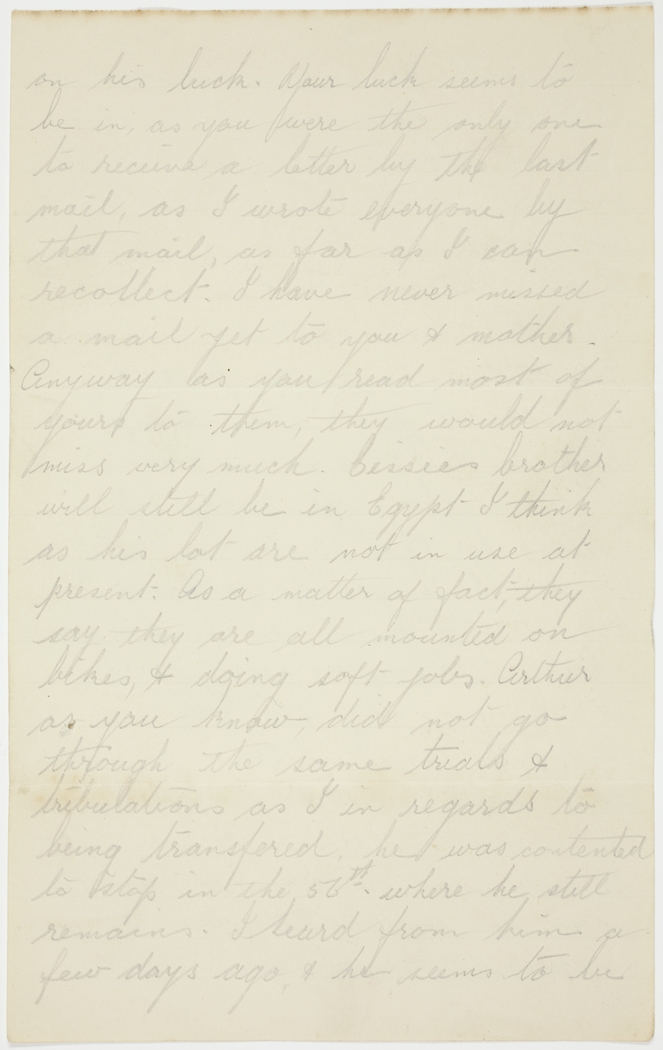 on his luck. Your luck seems to
be in, as you were the only one
to receive a letter by the last
mail, as I wrote everyone by
that mail, as far as I can
recollect. I have never missed
a mail yet to you & mother.
Anyway as you read most of
yours to them, they would not
miss very much. Cissies brother
will still be in Egypt I think
as his lot are not in use at
present. As a matter of fact, they
say they are all mounted on
bikes, & doing soft jobs. Arthur
as you know, did not go
through the same trials &
tribulations as I in regards to
being transfered, he was contented
to stop in the 56th. where he still
remains. I heard from him a
few days ago, & he seems to be